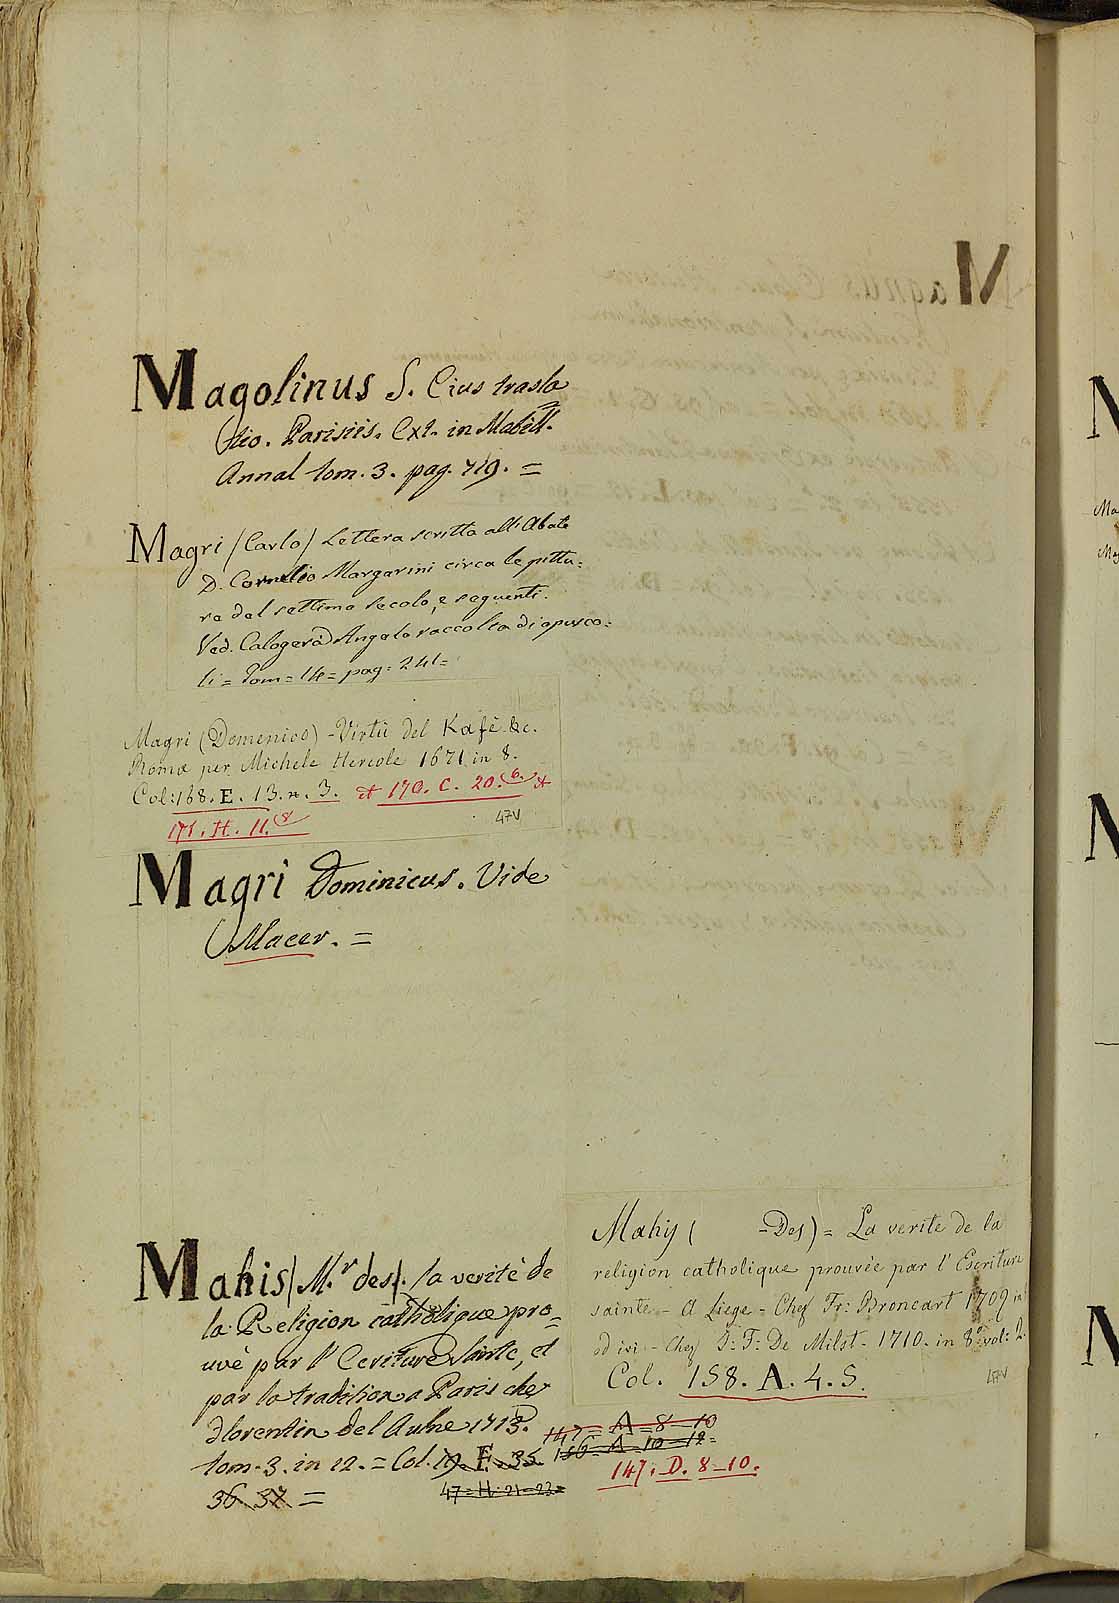 Magolinus S. Eius trasla
tio. Parisiis. Ext. in Mabill.
Annal tom. 3. pag. 719. =
Magri (Carlo) Lettera scritta all'Abate
D. Cornelio Margarini circa le pittu:
re del settimo secolo, e seguenti.
Ved. Calogerà D Angelo raccolta di opusco:
li = Tom = 14 = pag = 241 =
Magri (Domenico) - Virtù del Kafè &c.
Romæ per Michele Hercole 1671 in 8.
Col: 168. E. 13. n. 3. et 170. C. 20.(6. et
171. H. 11.(8
47V
Magri Dominicus. Vide
Macer. =
Mahis (M.r des). la verité de
la Religion catholique pro=
uvè par l' Ecriture Sainte, et
par la tradition a Paris chez
Florentin del Aulne 1713.
tom. 3. in 12. = Col. 19. F. 35.
36 37 =
47 = H. 21-22=
147= A = 8-10
156= A 10-12=
147. D. 8-10.
Mahis ( =Des) = La verite de la
religion catholique prouvée par l' Escriture
sainte - A Liege = Chez Fr: Broncart 1709 in
ed ivi - Chez J: F: De Milst - 1710. in 8.° vol: 2.
Col. 158. A. 4. 5.
47V